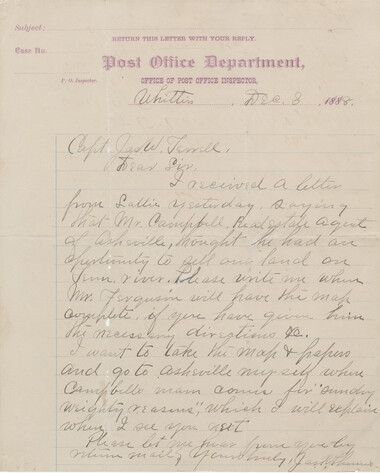 Subject:
RETURN THIS LETTER WITH YOUR REPLY.
Case No.
Post Office Department,
P. O. Inspector.
OFFICE OF POST OFFICE INSPECTOR,
Whittier Dec. 8 1888.
Capt. Jas. W. Terrell,
Dear Sir,
I received a letter
from Sallie yesterday, saying
that Mr. Campbell, Real estate agent
of Asheville, thought he had an
oportunity to sell our land on
Tenn. river. Please write me when
Mr. Ferguson will have the map
complete, if you have given him
the necessary directions &c.
I want to take the map & papers
and go to Asheville myself when
Campbells man comes for "sundry
weighty reasons", which I will explain
when I see you next.
Please let me hear from you by
return mail, Yours truly,